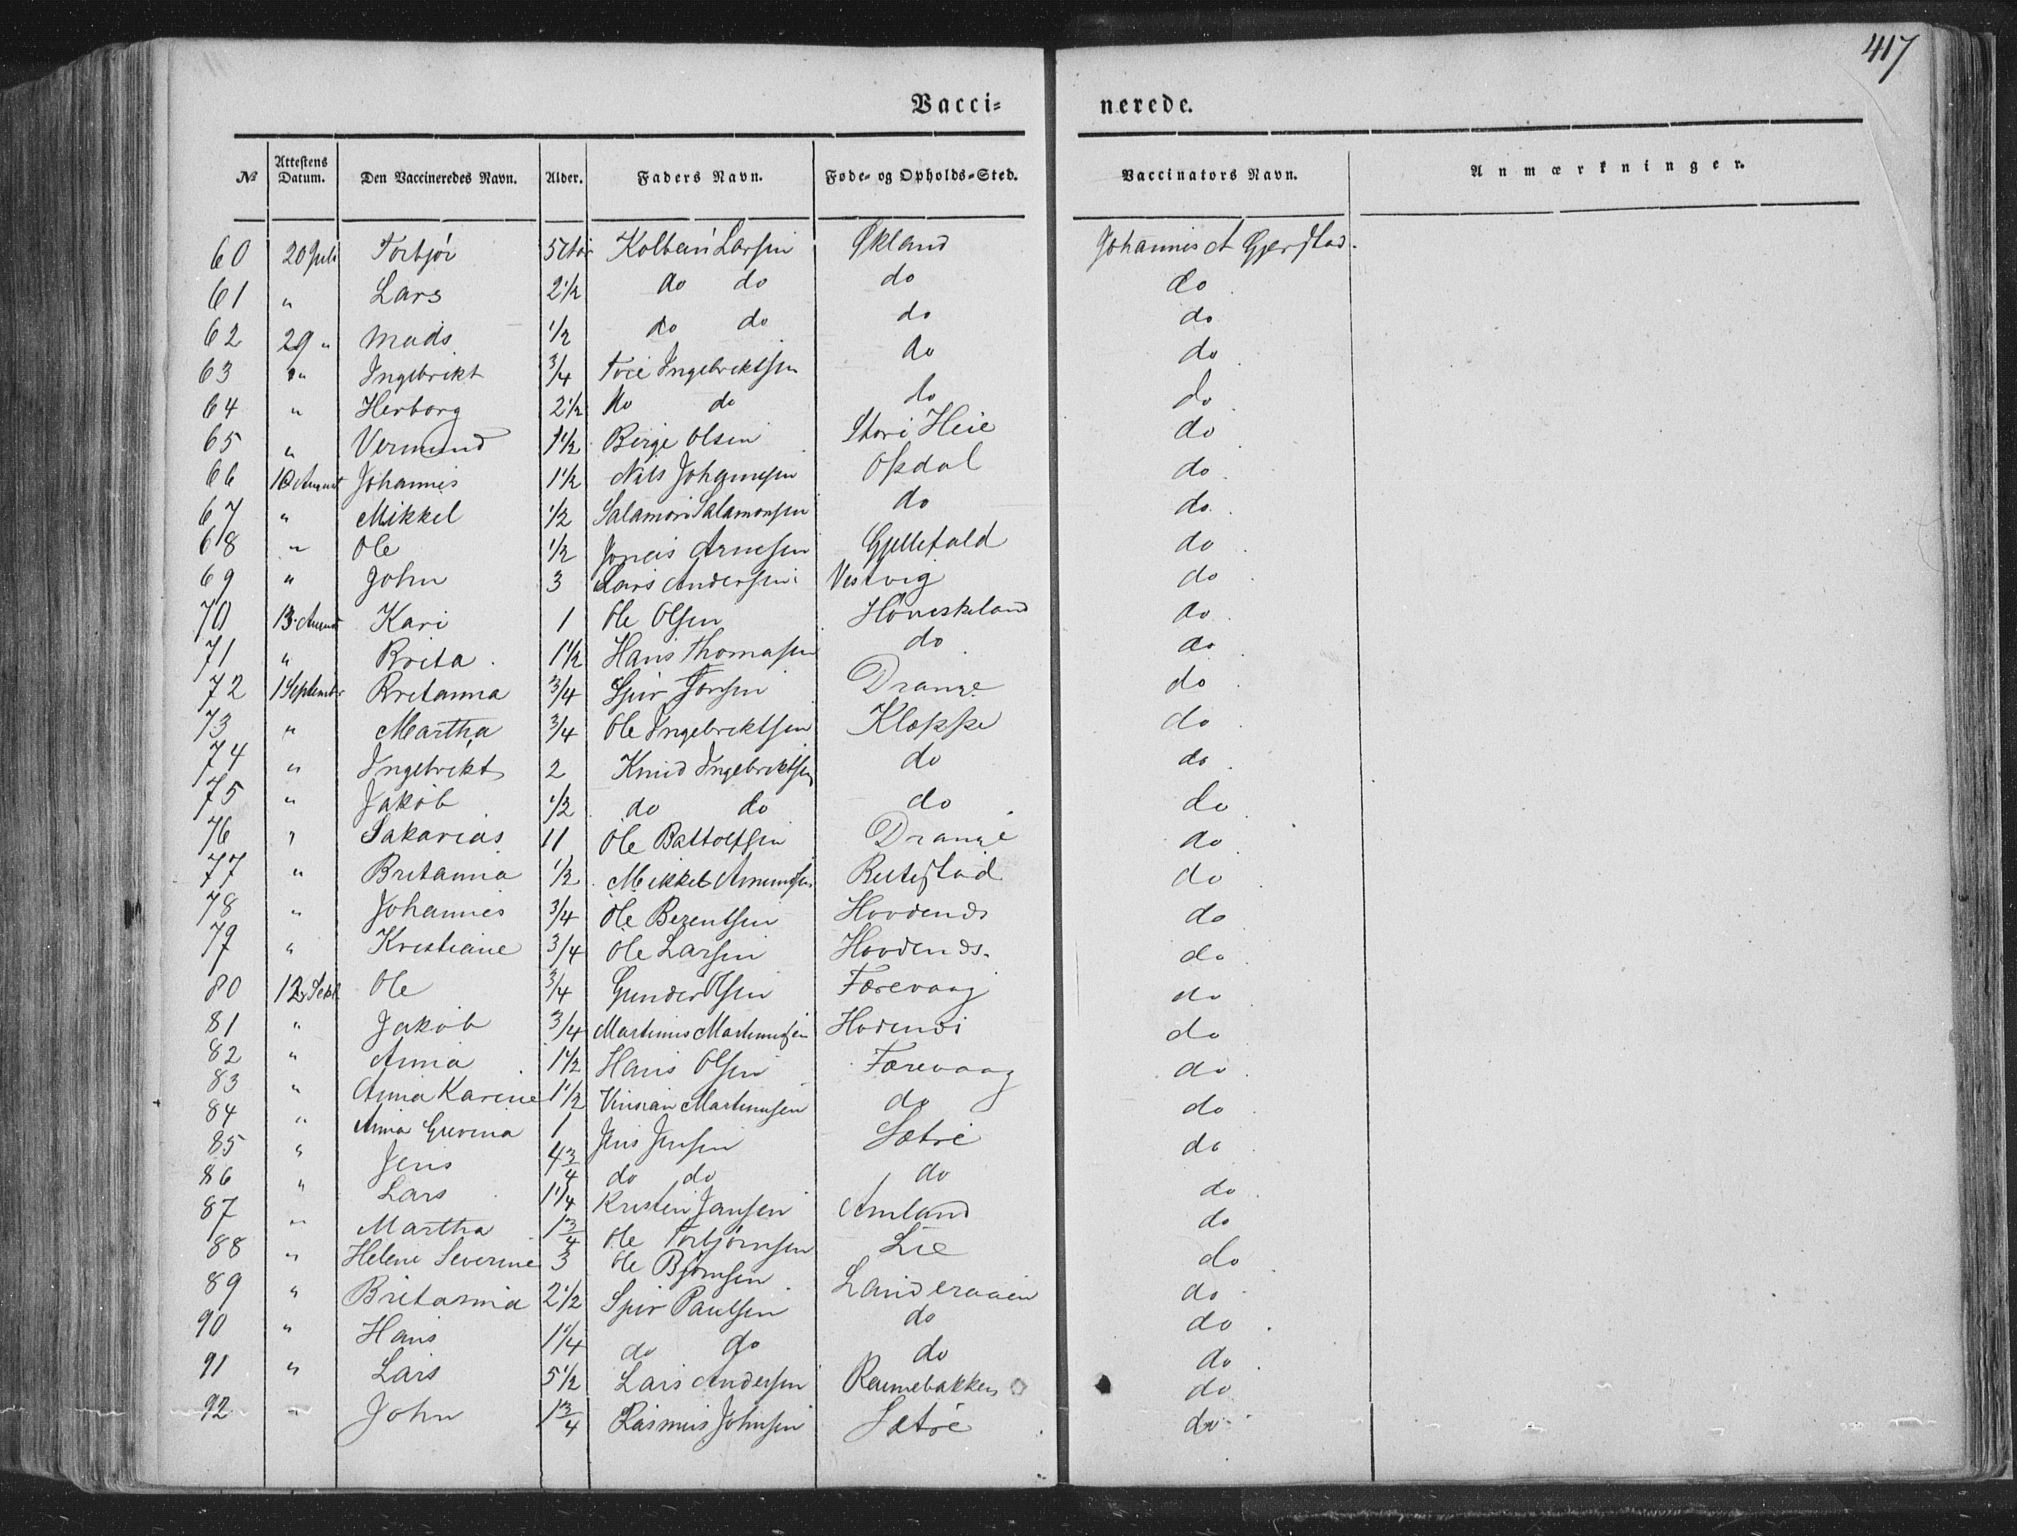 417
Vacci= nerede.
№ Attestens Datum. Den Vaccineredes Navn. Alder. Faders Navn. Føde- og Opholds-Sted. Vaccinators Navn. Anmærkninger.
60 20 Juli Torbjør 5 Aar Kolbein Larsen Økland Johannes A Gjerstad
61 " Lars 2 1/2 do do do do
62 29 " Mads 1/2 do do do do
63 " Ingebrikt 3/4 Tore Ingebriktsen do do
64 " Herborg 2 1/2 do do do do
65 " Vermund 1 1/2 Børge Olsen Store Heie do
66 10 August Johannes 1 1/2 Nils Johannesen Opdal do
67 " Mikkel 1/2 Salamon Salamonsen do do
68 " Ole 1/2 Jonas Arnesen Gjellefald do
69 " John 3 Lars Andersen Vestvig do
70 13 August Kari 1 Ole Olsen Høviskeland do
71 " Brita 1 1/2 Hans Thomasen do do
72 1 September Britanna 3/4 Sjur Jonsen Drange do
73 " Martha 3/4 Ole Ingebriktsen Kleppe do
74 " Ingebrikt 2 Knud Ingebriktsen do do
75 " Jakob 1/2 do do do do
76 " Sakarias 11 Ole Battolfsen Drange do
77 " Britanna 1/2 Mikkel Amundsen do
78 " Johannes 3/4 Ole Berentsen Hovdenes do
79 " Kristiane 3/4 Ole Larsen Hovdenes do
80 12 Sept Ole 3/4 Gunder Olsen Færevaag do
81 " Jakob 3/4 Martinus Martinusen do
82 " Anna 1 1/2 Hans Olsen Færevaag do
83 " Anna Karine 1 1/2 Vinsian Martinusen do do
84 " Anna Gurina 1 Jens Jensen Sætre do
85 " Jens 4 3/4 do do do do
86 " Lars 1 1/4 Kristen Jansen Amland do
87 " Martha 1 3/4 Ole Torbjørnsen Lie do
88 " Helene Severine 3 Ole Bjørnsen Landeraaen do
89 " Britanna 2 1/2 Sjur Paulsen do do
90 " Hans 1 1/4 do do do do
91 " Lars 5 1/2 Lars Andersen Rennebakken do
92 " John 1 3/4 Rasmus Johnsen Sætre do